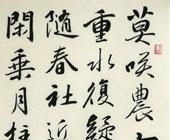 莫咲農
重水復疑
随春社近
閒乘月拄